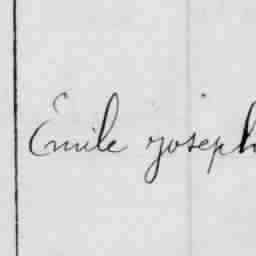 Emile Joseph